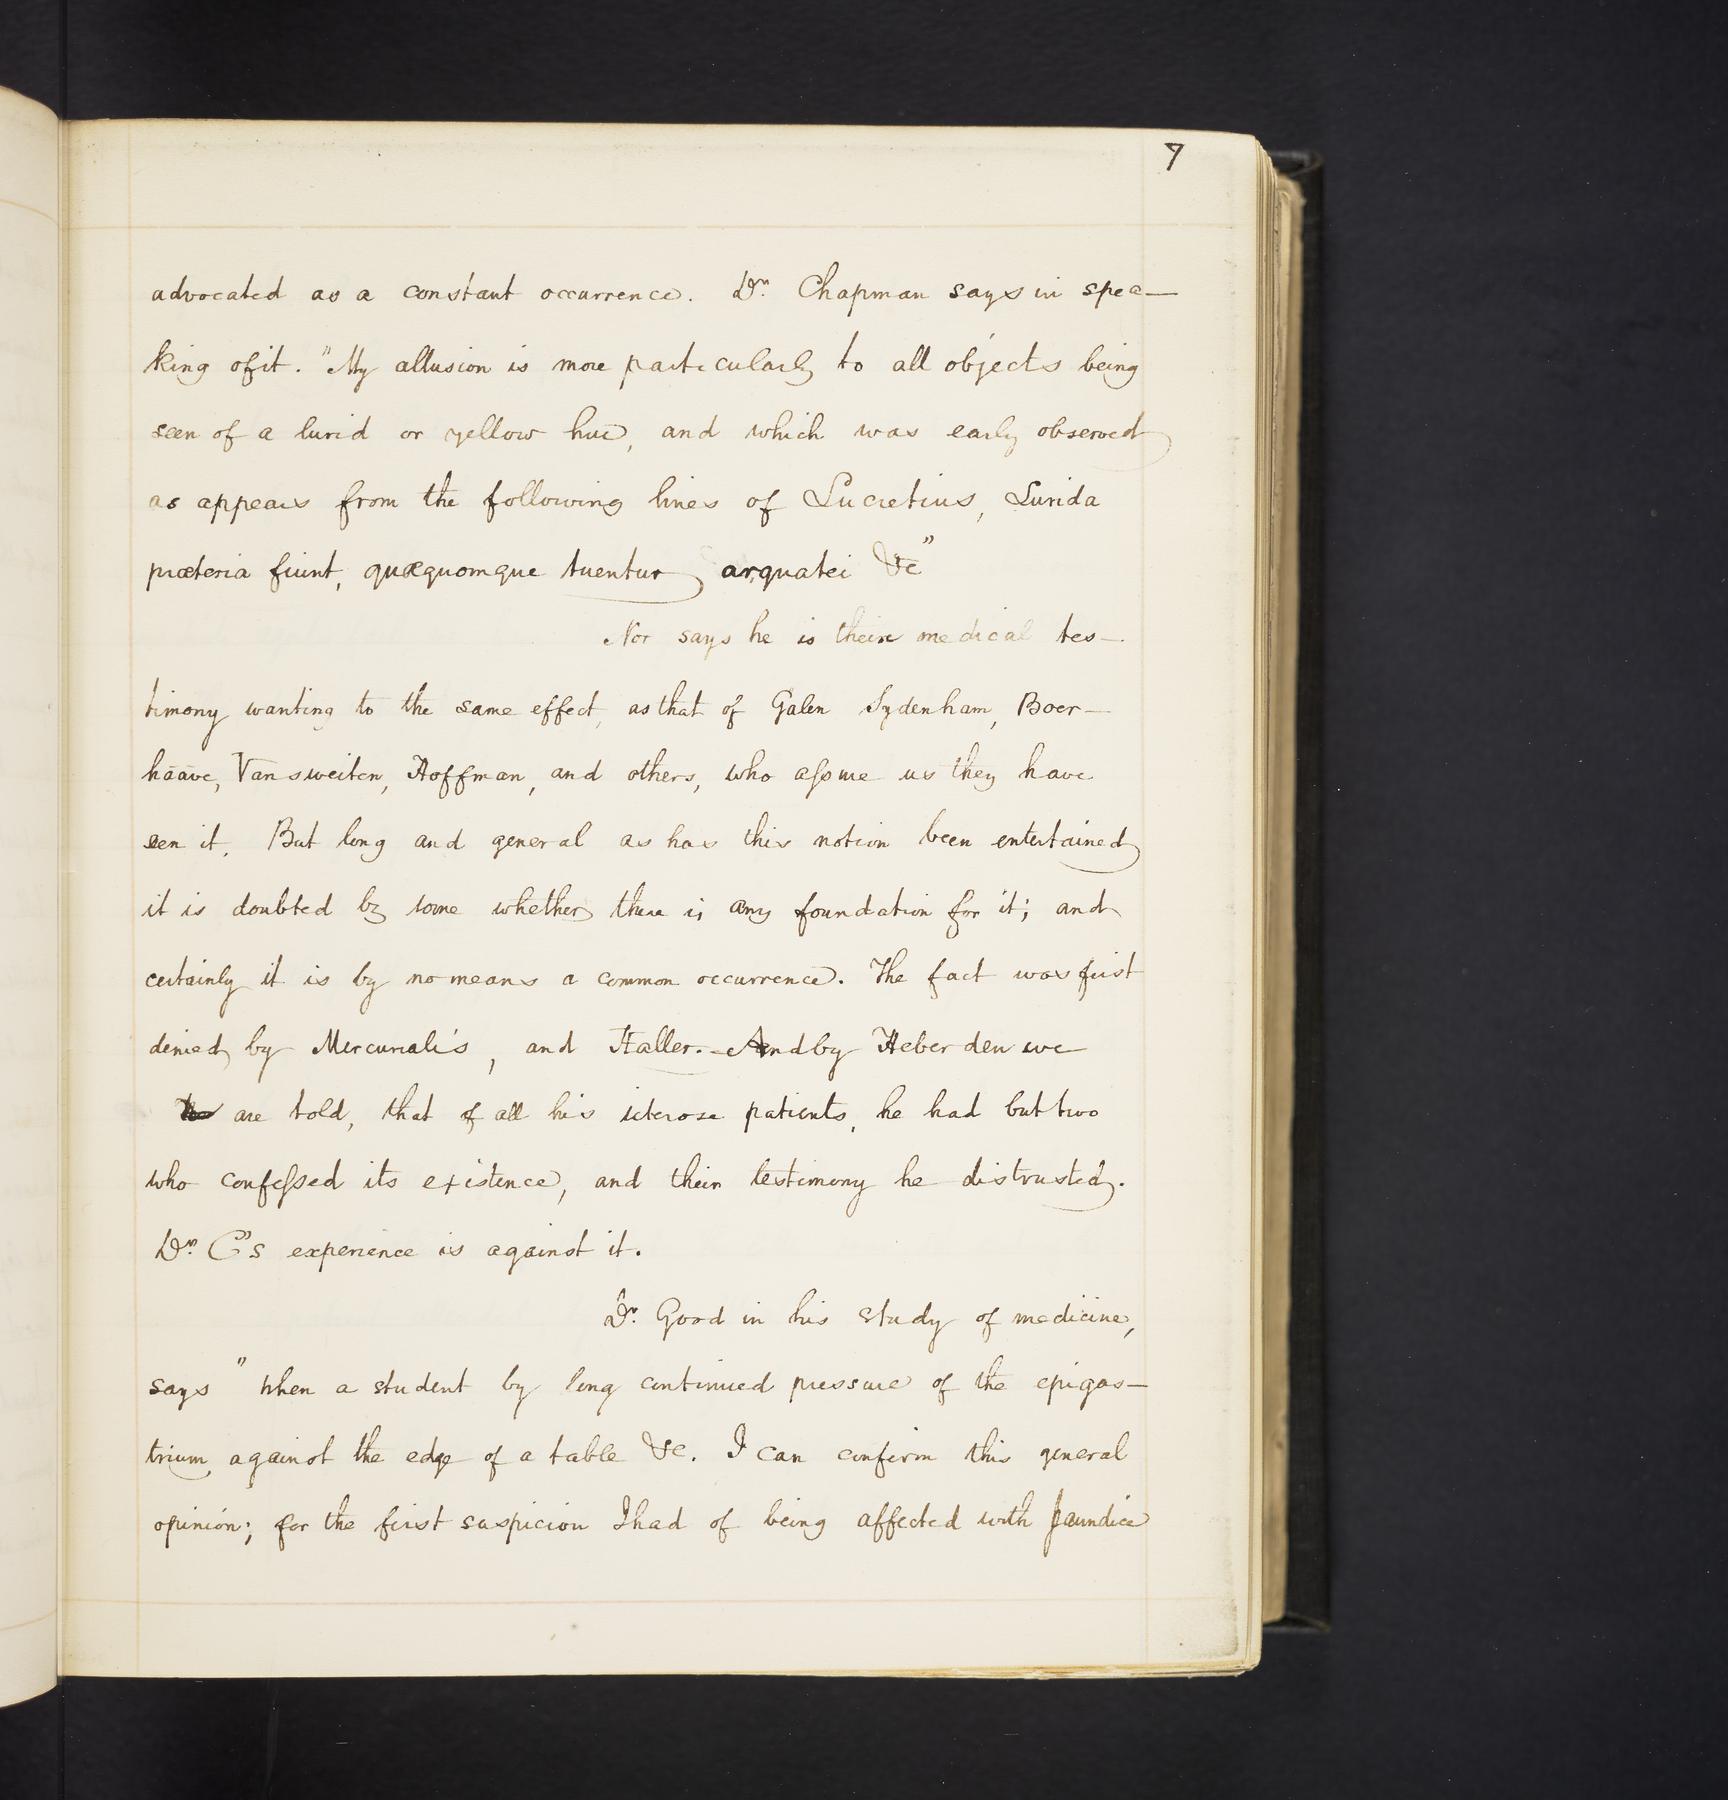 7
advocated as a constant occurrence. Dr. Chapman says in spea—
king of it. "My allusion is more particularly to all objects being
seen of a lurid or yellow hue, and which was early observed
as appears from the following lines of Lucretius, Lurida
præteria fiunt, quæquomque tuentur arquatei &c"
Nor says he is their medical tes—
timony wanting to the same effect, as that of Galen Sydenham, Boer—
hāāve, Van sweiten, Hoffman, and others, who assure us they have
seen it. But long and general as has this notion been entertained
it is doubted by some whether there is any foundation for it; and
certainly it is by no means a common occurrence. The fact was first
denied by Mercurialis, and Haller. And by Heberden we
are told, that of all his icterose patients, he had but two
who confessed its existence, and their testimony he distrusted.
Dr. C's experience is against it.
Dr. Good in his study of medicine,
says "when a student by long continued pressure of the epigas—
trium, against the edge of a table &c. I can confirm this general
opinion; for the first suspicion I had of being affected with Jaundice